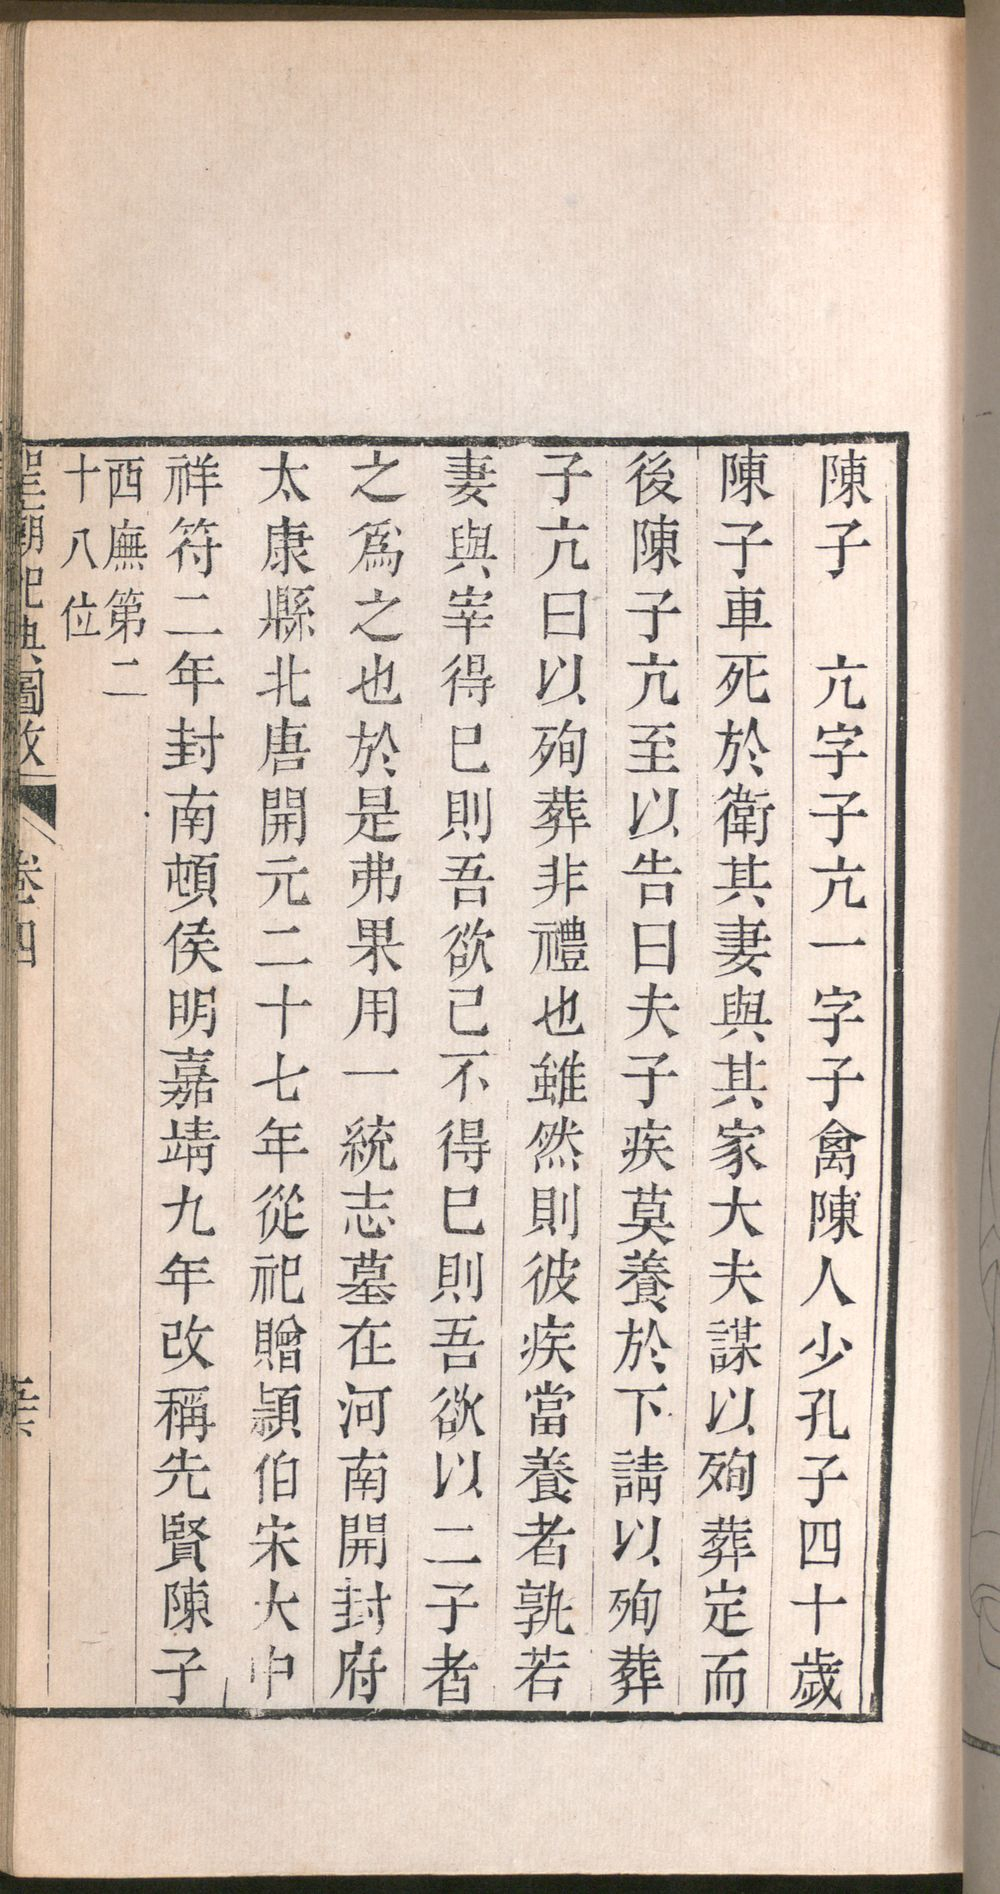 陳子　亢字子亢一字子禽陳人少孔子四十歲
陳子車死於衛其妻與其家大夫謀以殉葬定而
後陳子亢至以告曰夫子疾莫養於下請以殉葬
子亢曰以殉葬非禮也雖然則彼疾當養者孰若
妻與宰得已則吾欲已不得已則吾欲以二子者
之爲之也於是弗果用一統志墓在河南開封府
太康縣北唐開元二十七年從祀贈潁伯宋大中
祥符二年封南頓侯明嘉靖九年改稱先賢陳子
西廡第二
十八位
聖廟祀典圖攷
卷四